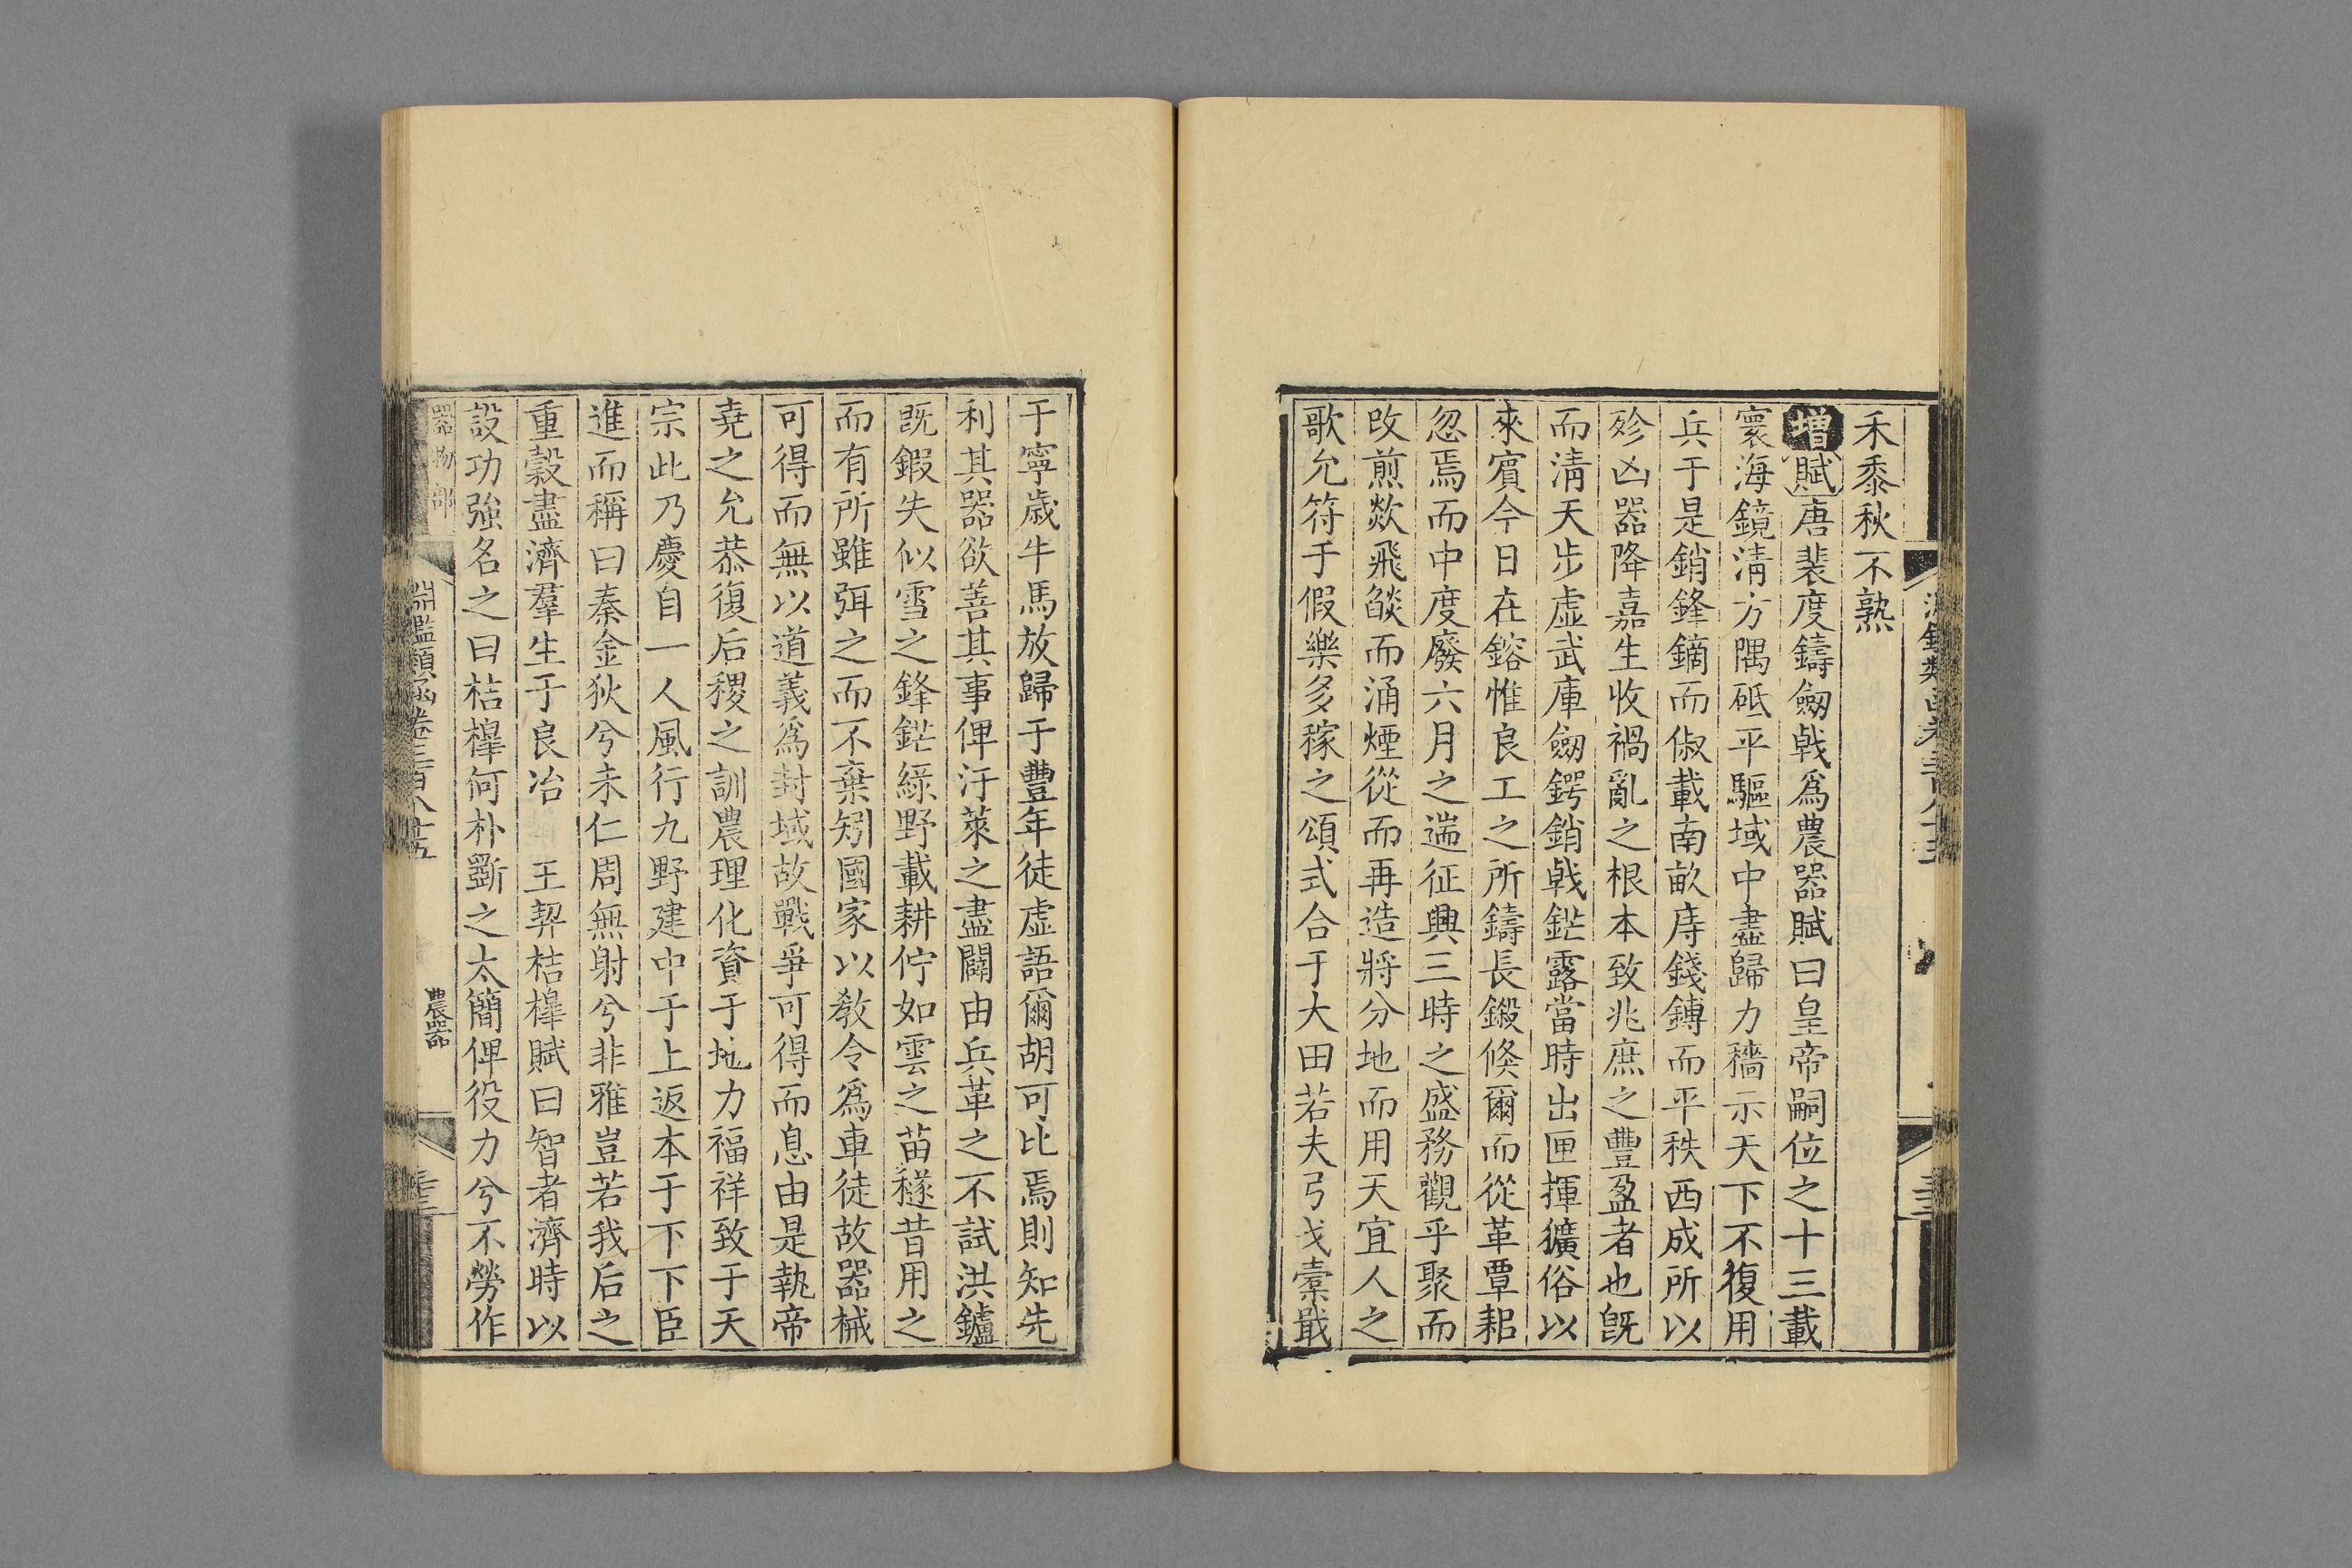 禾黍秋不熟
增賦唐裴度鑄劒戟爲農器賦曰皇帝嗣位之十三載
寰海鏡淸方隅砥平驅域中盡歸力穡示天下不復用
兵于是銷鋒鏑而俶載南畝庤錢鎛而平秩西成所以
殄凶器降嘉生收禍亂之根本致兆庶之豐盈者也旣
而淸天步虛武庫劒鍔銷戟鋩露當時出匣揮獷俗以
來賓今日在鎔惟良工之所鑄長鎩倐爾而從革覃耜
忽焉而中度廢六月之遄征興三時之盛務觀乎聚而
攺煎欻飛燄而涌煙從而再造將分地而用天宜人之
歌允符于假樂多稼之頌式合于大田若夫弓戈櫜戢
于寧歲牛馬放歸于豐年徒虛語爾胡可比焉則知先
利其器欲善其事俾汙萊之盡闢由兵革之不試洪鑪
旣鍜失似雪之鋒鋩綠野載耕佇如雲之苗穟昔用之
而有所雖弭之而不棄矧國家以敎令爲車徒故器械
可得而無以道義爲封域故戰爭可得而息由是執帝
堯之允恭復后稷之訓農理化資于地力福祥致于天
宗此乃慶自一人風行九野建中于上返本于下下臣
進而稱曰秦金狄兮未仁周無射兮非雅豈若我后之
重穀盡濟羣生于良冶 王契桔槹賦曰智者濟時以
設功強名之曰桔槹何朴斵之太簡俾役力兮不勞作
器物部 淵鑑類函卷三百八十五 農器